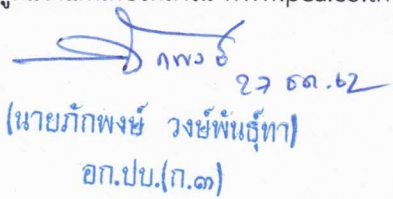 ภักพงษ์
27 ธค. 62
(นายภักพงษ์ วงษ์พันธุ์ทา)
อก.ปบ.(ก.๓)